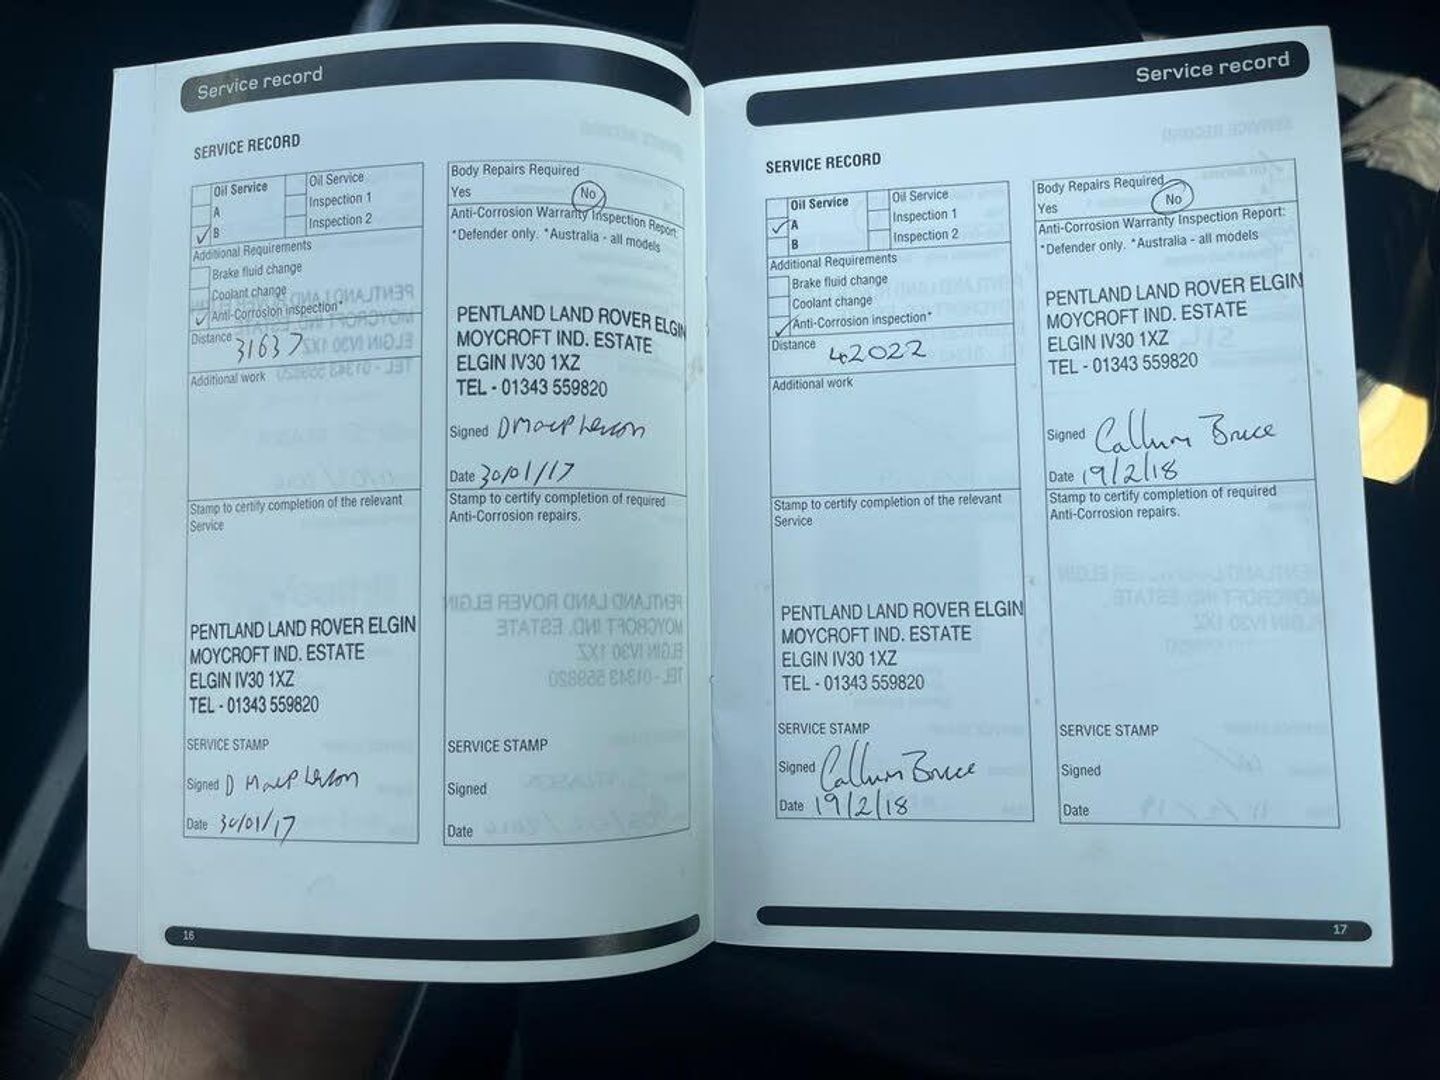 Service record
SERVICE RECORD
Oil Service
A
B
Oil Service
Inspection 1
Inspection 2
Additional Requirements
Brake fluid change
Coolant change
Anti-Corrosion inspection*
Distance 31637
Additional work
Stamp to certify completion of the relevant
Service
PENTLAND LAND ROVER ELGIN
MOYCROFT IND. ESTATE
ELGIN IV30 1XZ
TEL - 01343 559820
SERVICE STAMP
Signed D Macpherson
Date 30/01/17
Body Repairs Required
Yes No
Anti-Corrosion Warranty Inspection Report:
*Defender only. *Australia - all models
PENTLAND LAND ROVER ELGIN
MOYCROFT IND. ESTATE
ELGIN IV30 1XZ
TEL - 01343 559820
Signed D Macpherson
Date 30/01/17
Stamp to certify completion of required
Anti-Corrosion repairs.
SERVICE STAMP
Signed
Date
16
Service record
SERVICE RECORD
Oil Service
A
B
Oil Service
Inspection 1
Inspection 2
Additional Requirements
Brake fluid change
Coolant change
Anti-Corrosion inspection*
Distance 42022
Additional work
Stamp to certify completion of the relevant
Service
PENTLAND LAND ROVER ELGIN
MOYCROFT IND. ESTATE
ELGIN IV30 1XZ
TEL - 01343 559820
SERVICE STAMP
Signed Callum Bruce
Date 19/2/18
Body Repairs Required
Yes No
Anti-Corrosion Warranty Inspection Report:
*Defender only. *Australia - all models
PENTLAND LAND ROVER ELGIN
MOYCROFT IND. ESTATE
ELGIN IV30 1XZ
TEL - 01343 559820
Signed Callum Bruce
Date 19/2/18
Stamp to certify completion of required
Anti-Corrosion repairs.
SERVICE STAMP
Signed
Date
17